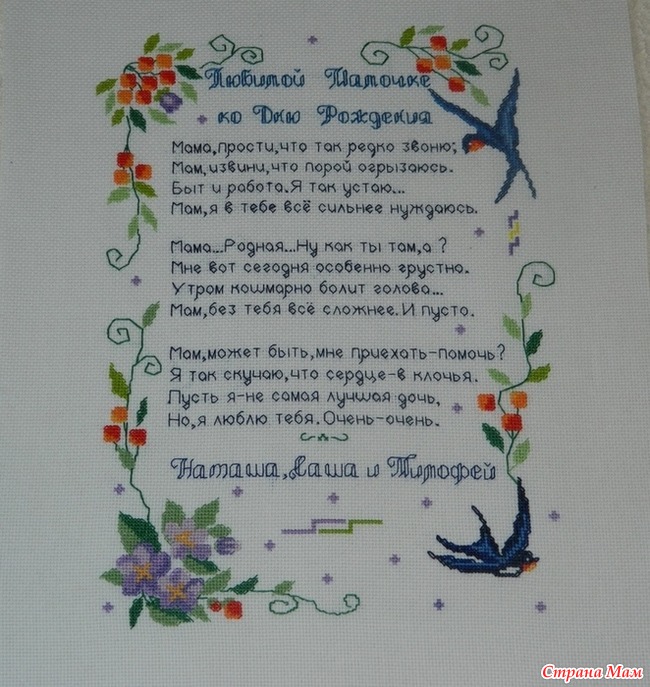 Любимой Мамочке
ко Дню Рождения
Мама,прости,что так редко звоню;
Мам,извини,что порой огрызаюсь.
Быт и работа.Я так устаю...
Мам,я в тебе всё сильнее нуждаюсь.
Мама...Родная...Ну как ты там,а ?
Мне вот сегодня особенно грустно.
Утром кошмарно болит голова...
Мам,без тебя всё сложнее.И пусто.
Мам,может быть,мне приехать-помочь?
Я так скучаю,что сердце-в клочья.
Пусть я-не самая лучшая дочь,
Но,я люблю тебя.Очень-очень.
Наташа,Саша и Тимофей
Страна Мам